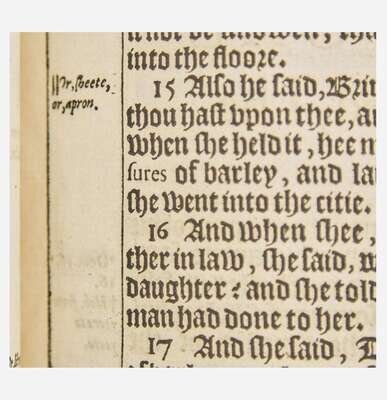 into the floore.
||Or, sheete,
or, apron.
15 Also he said, Brin
thou hast vpon thee, a
when she held it, hee m
sures of barley, and la
she went into the citie.
16 And when shee,
ther in law, she said, w
daughter : and she told
man had done to her.
17 And she said,